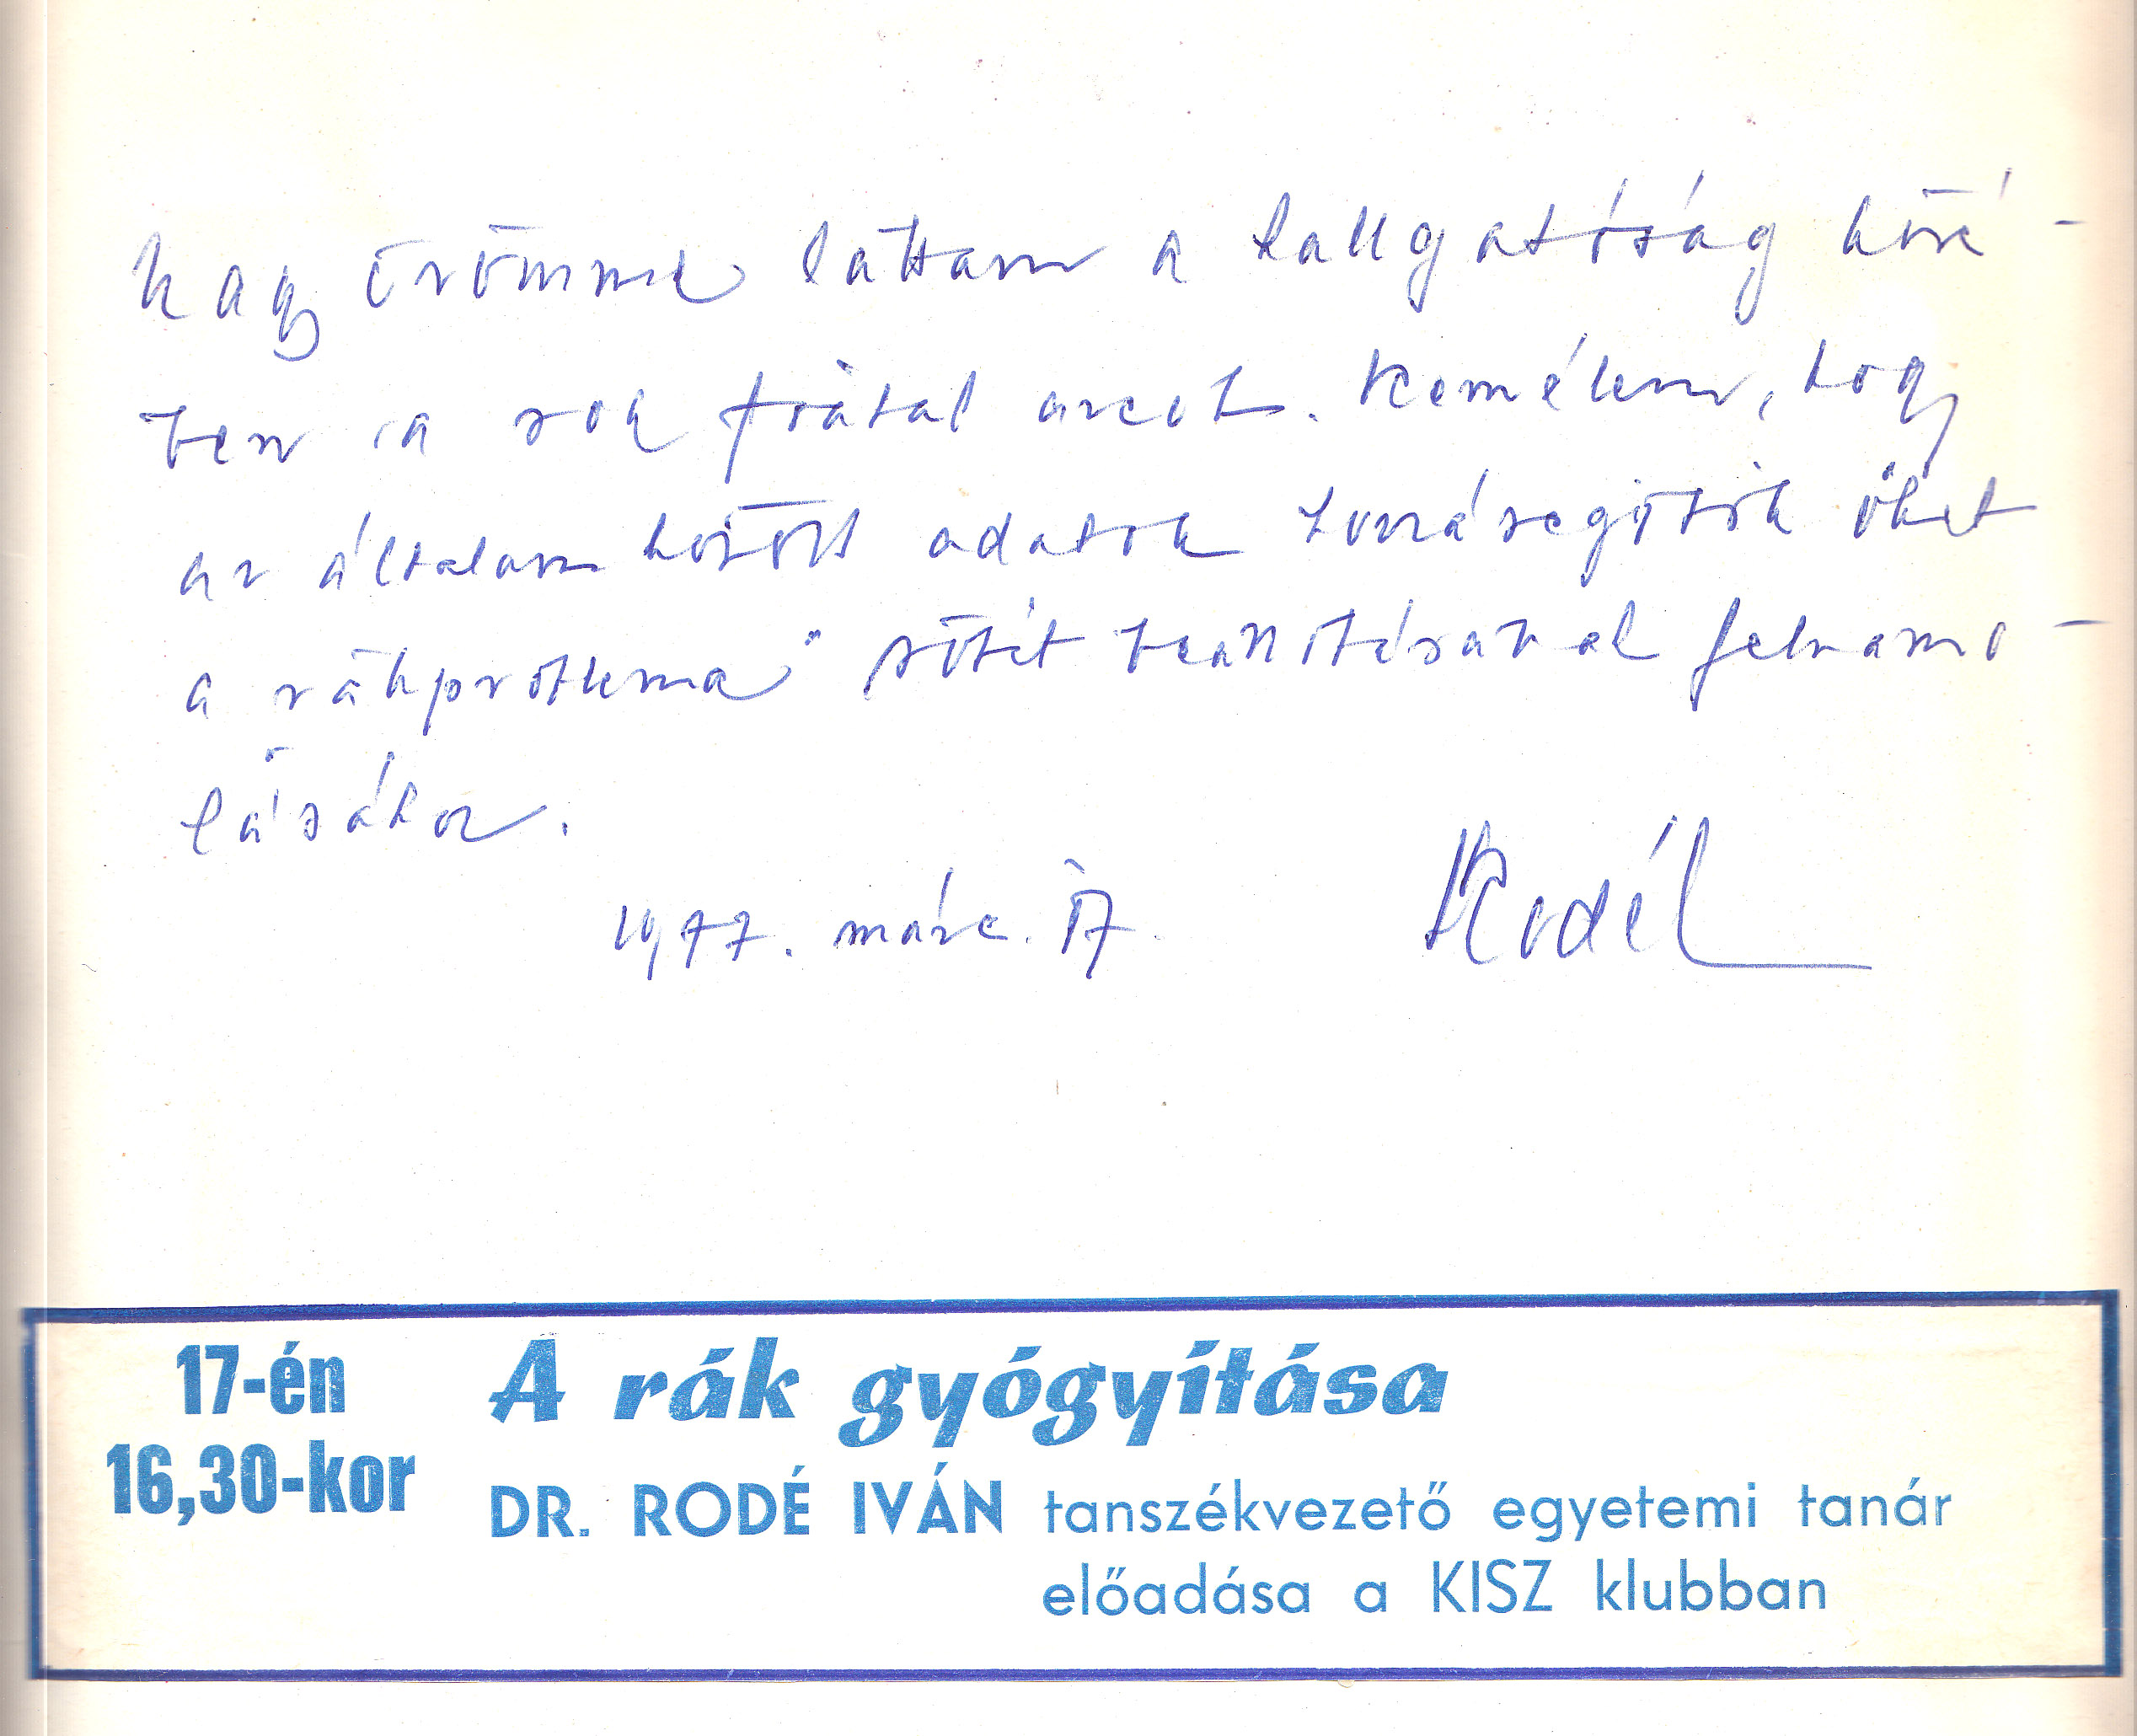 Nagy örömmel láttam a hallgatóság köré-
ben a sok fiatal arcot. Remélem, hogy
az általam között adatok hozzásegítik őket
a rákprobléma sötét beállításával felszámo-
lásához.
1977. márc. 17. Rodé I
17-én A rák gyógyítása
16,30-kor DR. RODÉ IVÁN tanszékvezető egyetemi tanár
előadása a KISZ klubban